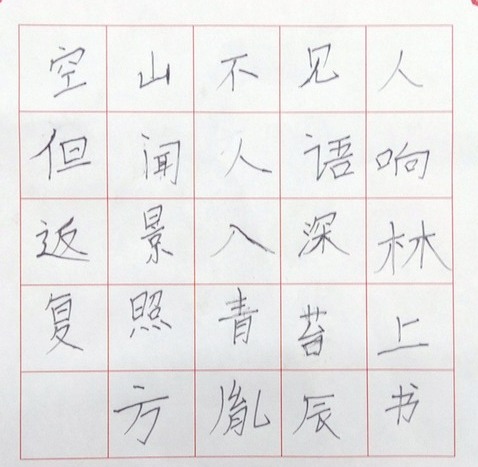 空山不见人
但闻人语响
返景入深林
复照青苔上
方胤辰书